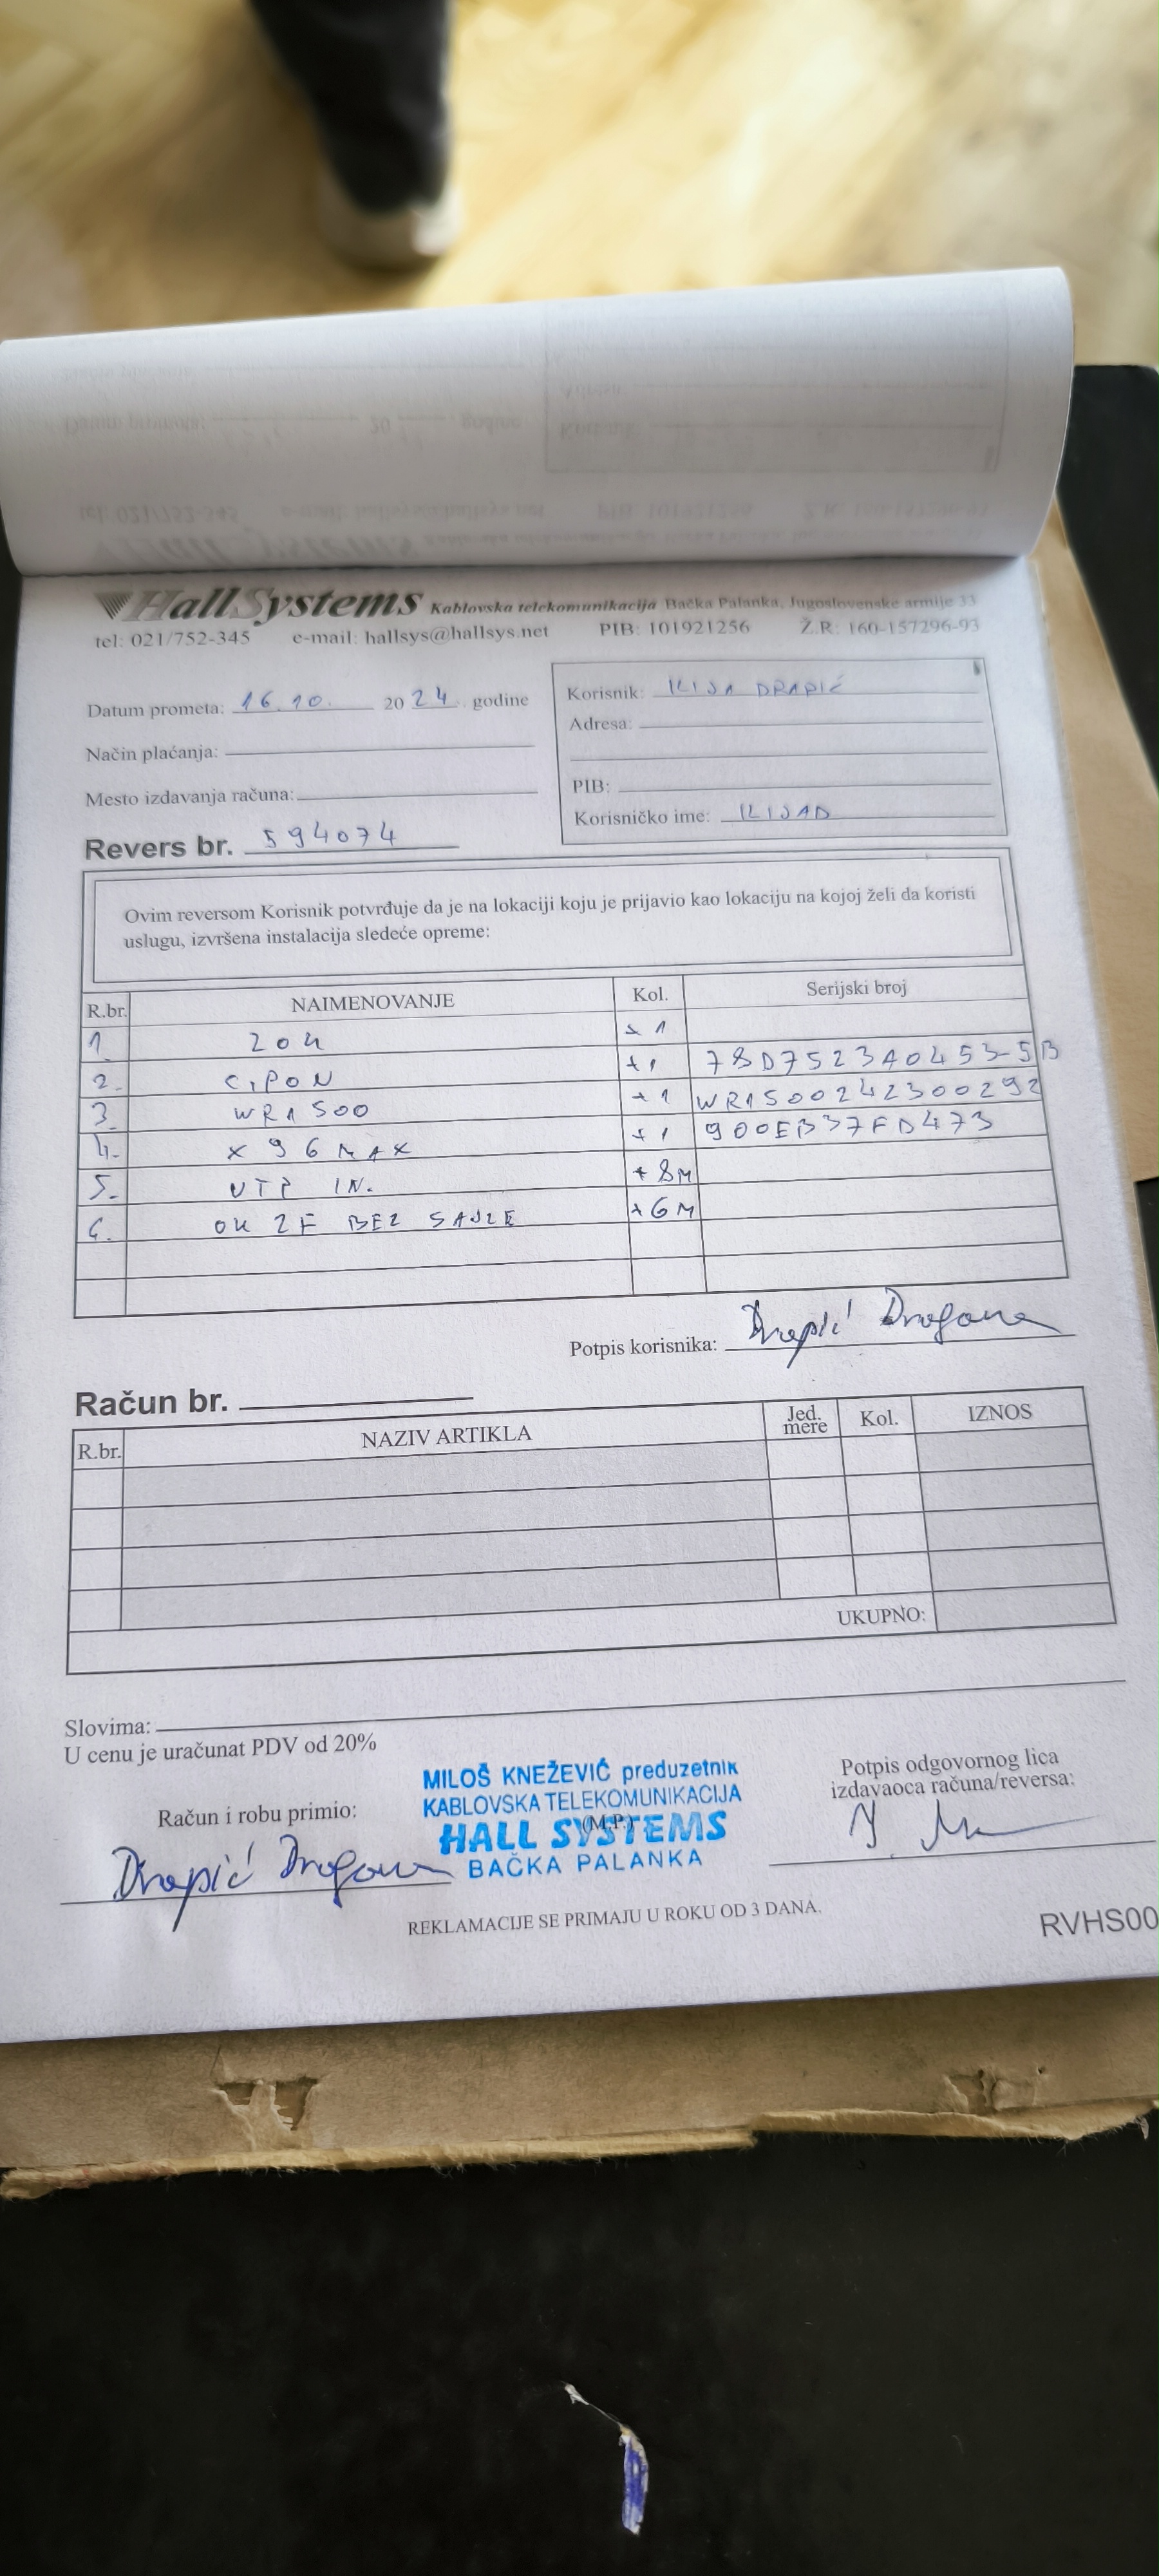 HallSystems Kablovska telekomunikacija Bačka Palanka, Jugoslovenske armije 33
tel: 021/752-345 e-mail: hallsys@hallsys.net PIB: 101921256 Ž.R: 160-157296-93
Datum prometa: 16.10. 2024. godine
Način plaćanja:
Mesto izdavanja računa:
Revers br. 594074
Korisnik: ILIJA DRAPIĆ
Adresa:
PIB:
Korisničko ime: ILIJAD
Ovim reversom Korisnik potvrđuje da je na lokaciji koju je prijavio kao lokaciju na kojoj želi da koristi
uslugu, izvršena instalacija sledeće opreme:
R.br. NAIMENOVANJE Kol. Serijski broj
1. ZOK +1
2. CIPON +1 78D7523A0453-5B
3. WR1500 +1 WR1500242300292
4. X96MAX +1 900EB37FD473
5. UTP IN. +8M
6. OK 2F BEZ SAJLE +6M
Potpis korisnika: Drapić Dragana
Račun br.
R.br. NAZIV ARTIKLA Jed. mere Kol. IZNOS
UKUPNO:
Slovima:
U cenu je uračunat PDV od 20%
Račun i robu primio:
Drapić Dragana
MILOŠ KNEŽEVIĆ preduzetnik
KABLOVSKA TELEKOMUNIKACIJA
(M.P.)
HALL SYSTEMS
BAČKA PALANKA
Potpis odgovornog lica
izdavaoca računa/reversa:
REKLAMACIJE SE PRIMAJU U ROKU OD 3 DANA.
RVHS00